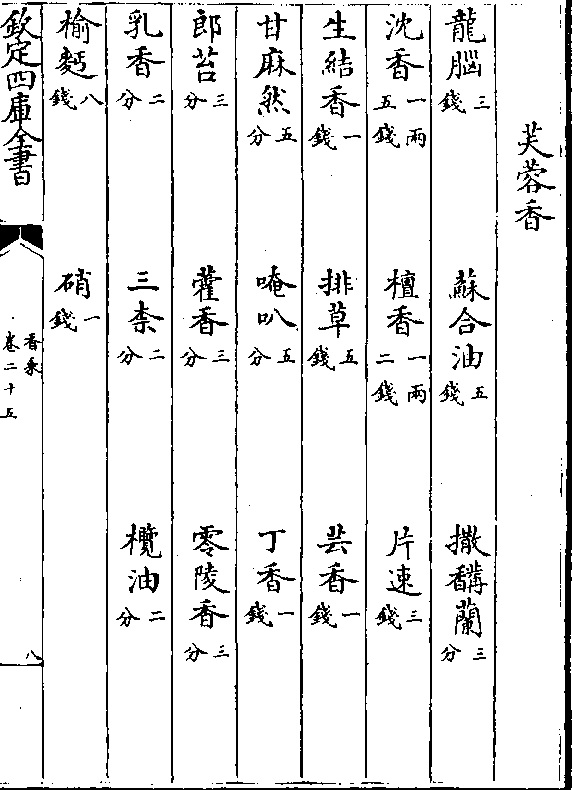 芙蓉香
龍腦三錢 蘇合油五錢 撒𩡝蘭三分
沈香一兩五錢 檀香一兩二錢 片速三錢
生結香一錢 排草五錢 芸香一錢
甘麻然五分 唵叭五分 丁香一錢
郎苔三分 藿香三分 零陵香三分
乳香二分 三柰二分 欖油二分
榆麪八錢 硝一錢
欽定四庫全書
香乘
卷二十五
八